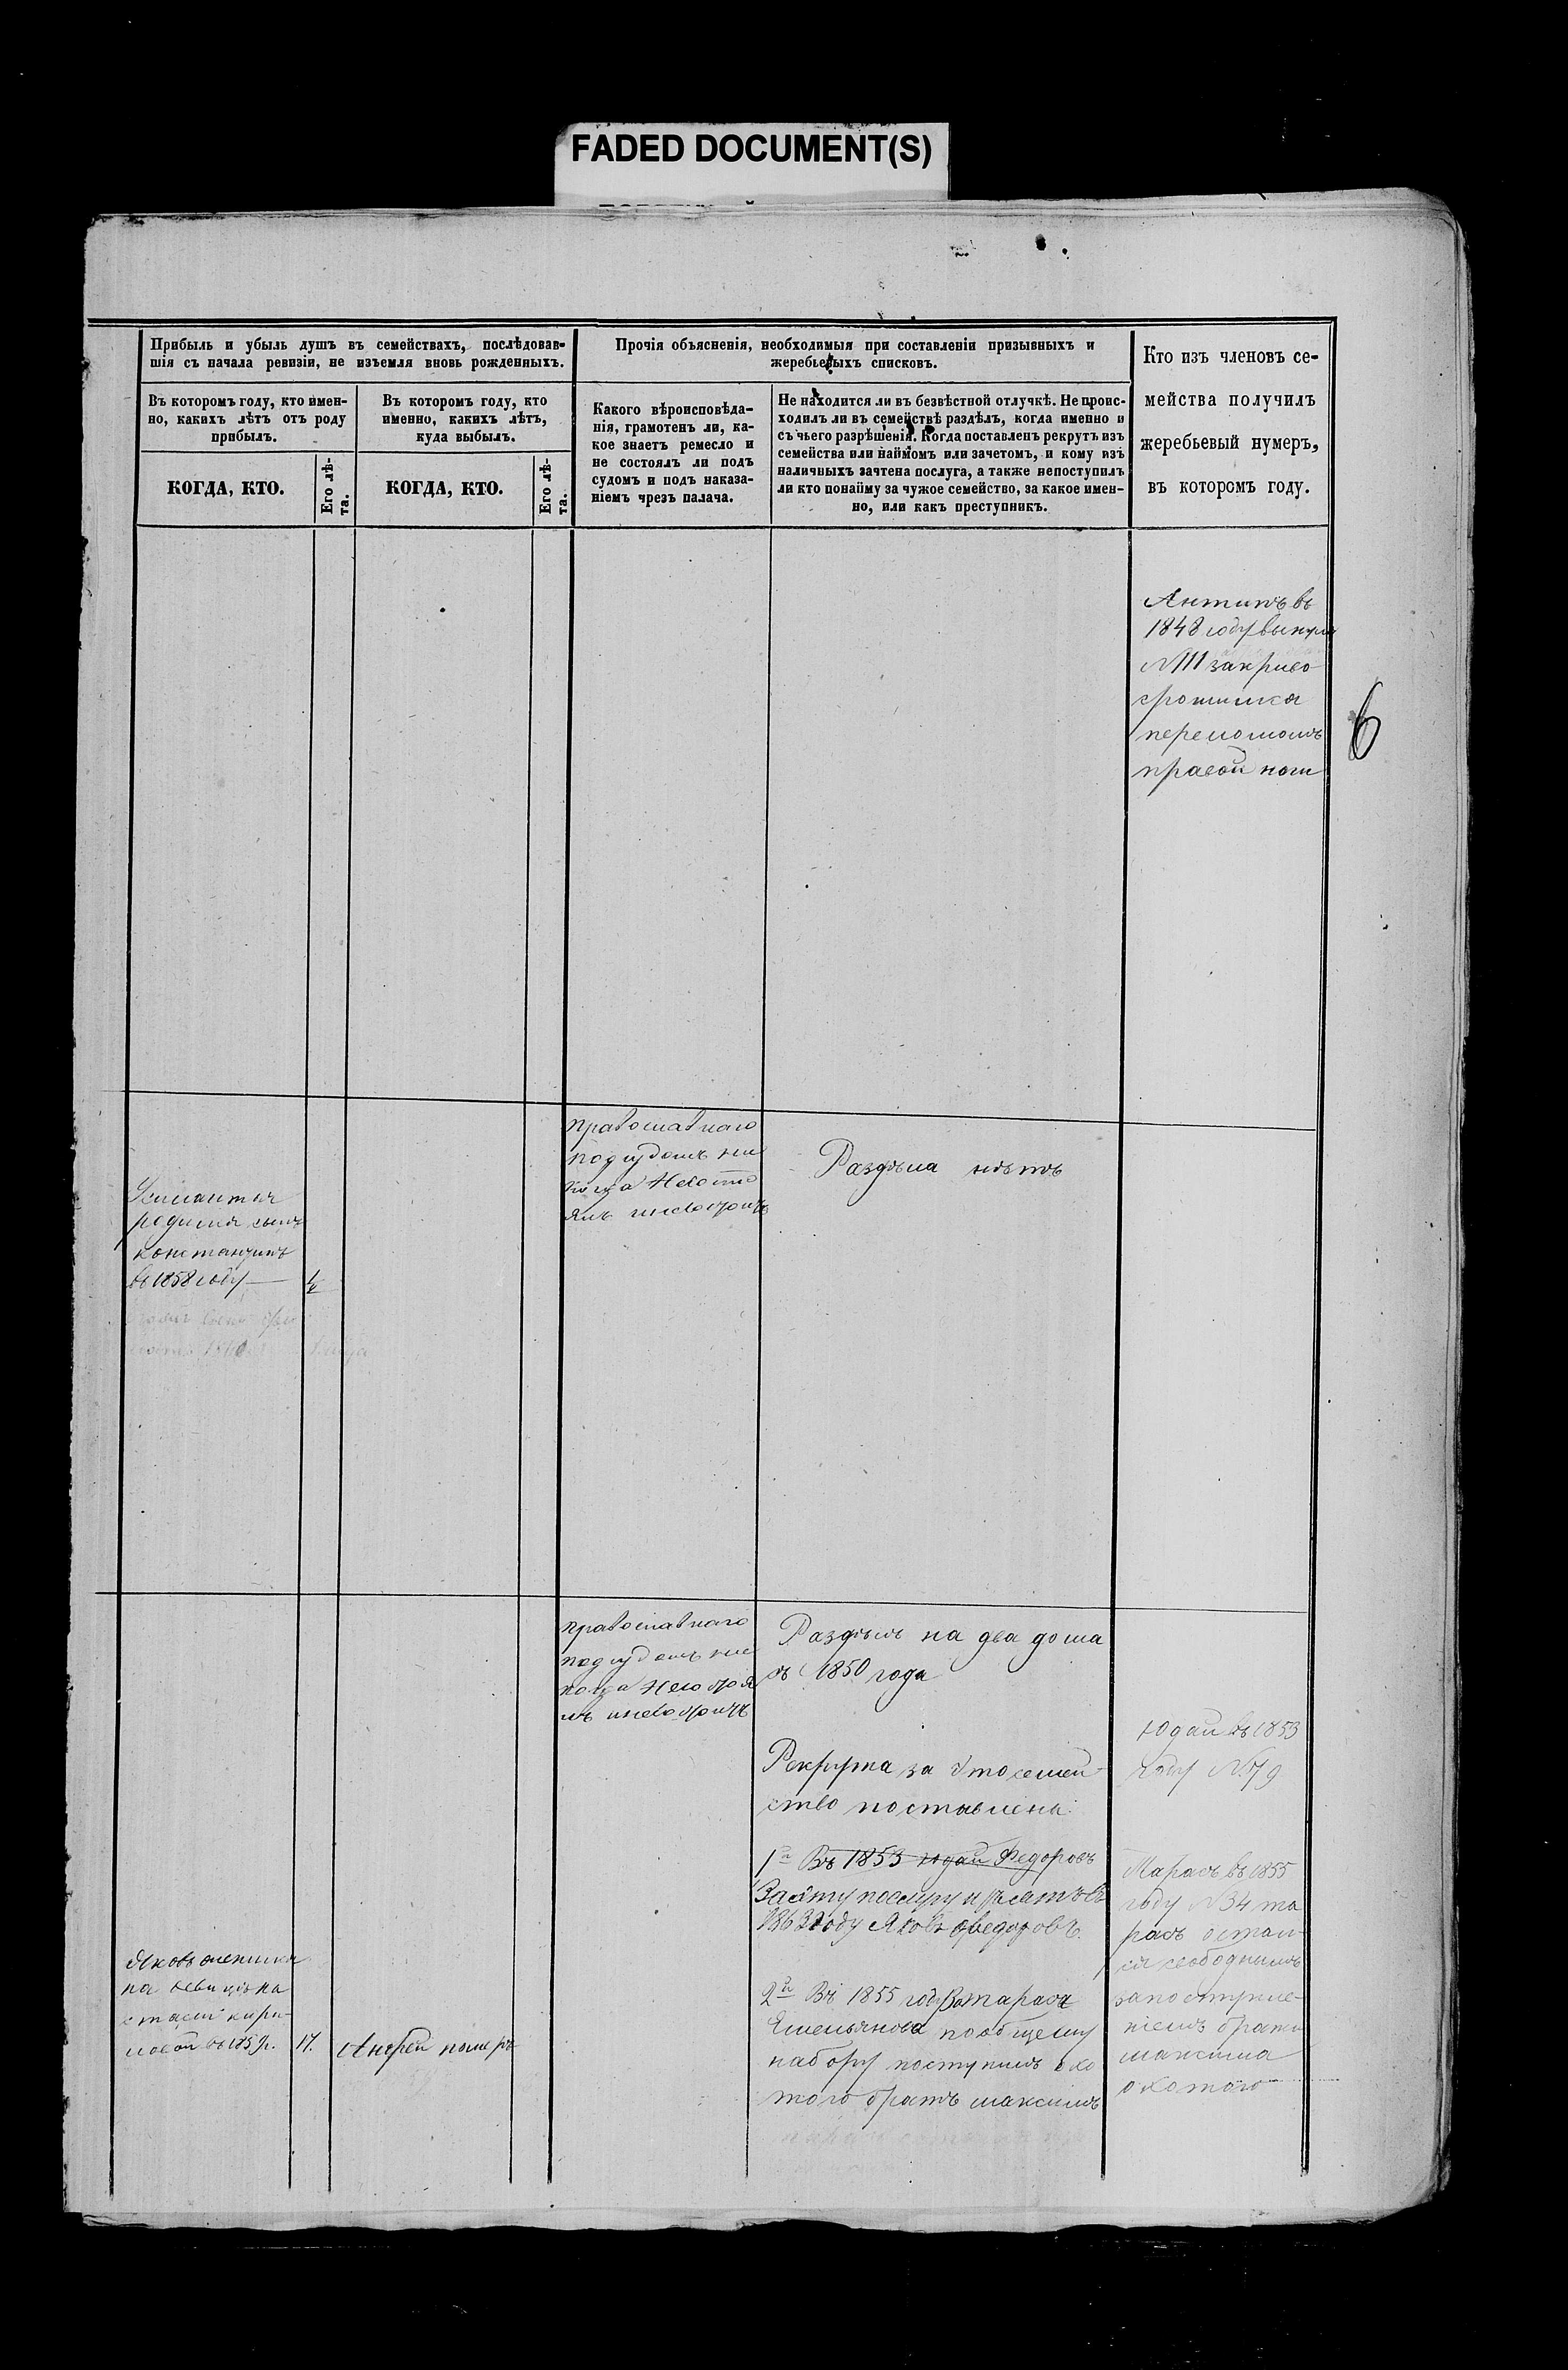 FADED DOCUMENT(S)
Прибыль и убыль душъ въ семействахъ, послѣдовав-
шія съ начала ревизіи, не изъемля вновь рожденныхъ.
Прочія объясненія, необходимыя при составленіи призывныхъ и
жеребьевыхъ списковъ.
Кто изъ членовъ се-
мейства получилъ
жеребьевый нумеръ,
въ которомъ году.
Въ которомъ году, кто имен-
но, какихъ лѣтъ отъ роду
прибылъ.
Въ которомъ году, кто
именно, какихъ лѣтъ,
куда выбылъ.
Какого вѣроисповѣда-
нія, грамотенъ ли, ка-
кое знаетъ ремесло и
не состоялъ ли подъ
судомъ и подъ наказа-
ніемъ чрезъ палача.
Не находится ли въ безвѣстной отлучкѣ. Не проис-
ходилъ ли въ семействѣ раздѣлъ, когда именно и
съ чьего разрѣшенія. Когда поставленъ рекрутъ изъ
семейства или наймомъ или зачетомъ, и кому изъ
наличныхъ зачтена послуга, а также непоступилъ
ли кто понайму за чужое семейство, за какое имен-
но, или какъ преступникъ.
КОГДА, КТО.
Его лѣ-
та.
КОГДА, КТО.
Его лѣ-
та.
Антипъ въ
1848 году вынулъ
№ 111
переломомъ
правой ноги
6
православнаго
подсудомъ ни
когда Несосто
ялъ инесостоитъ
Раздѣла нѣтъ
родился сынъ
константинъ
въ 1858 году
православнаго
подсудомъ ни
когда Несостоя
лъ инесостоитъ
Раздѣлъ на два дома
съ 1850 года
Рекрута за Это семей-
ство поставлены:
1й Въ 1853 юдай Федоровъ
За эту послугу
1863 году Яковъ Федоровъ.
2й Въ 1855 году За тараса
Емельянова пообщему
набору поступилъ охо
того братъ максимъ
Юдай въ 1853
году № 79
Тарасъ въ 1855
году № 34 та
расъ остал-
ся свободнымъ
запоступле-
ніемъ брата
максима
охотою
Яковъ женился
на девицѣ На
стасіи кири-
ловой въ 185 г. 17.
Андрей померъ